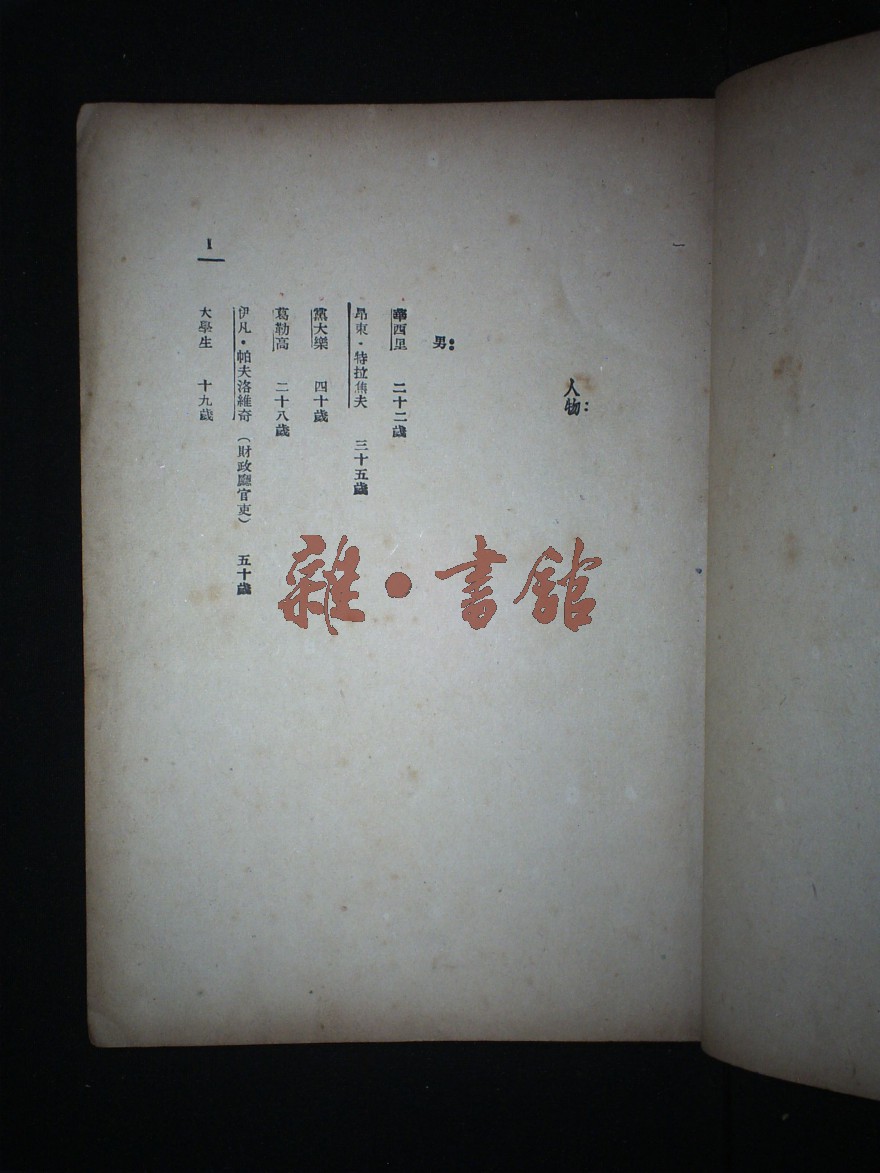 人物：
男：
華西里　二十二歲
昂東・特拉焦夫　三十五歲
黨大樂　四十歲
葛勒高　二十八歲
伊凡・帕夫洛維奇（財政廳官吏）　五十歲
大學生　十九歲
1
雜・書館